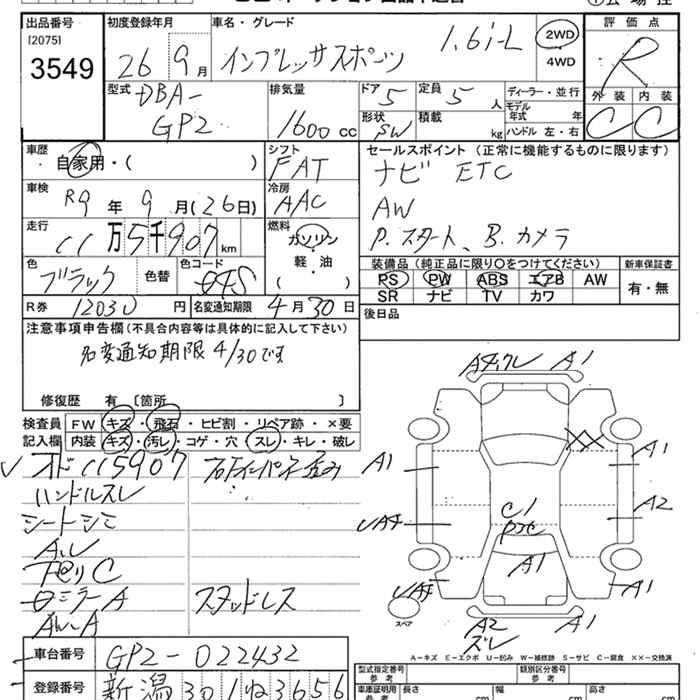 出品番号
[2075]
3549
初度登録年月
26 9月
車名・グレード
インプレッサスポーツ 1.6i-L
2WD
4WD
評価点
R
外装 内装
C C
型式
DBA-
GP2
排気量
1600cc
ドア 5
定員 5人
形状 SW
積載 kg
ディーラー・並行
モデル年式 年
ハンドル 左・右
車歴
自家用・( )
シフト
FAT
セールスポイント(正常に機能するものに限ります)
ナビ ETC
AW
P.スタート、B.カメラ
車検
R9年 9月(26日)
冷房
AAC
走行
11万5千907km
燃料
ガソリン
軽・油
( )
色
ブラック
色替
色コード
装備品(純正品に限り○をつけてください)
PS PW ABS エアB AW
SR ナビ TV カワ
新車保証書
有・無
R券 12030円
名変通知期限 4月30日
後日品
注意事項申告欄(不具合内容等は具体的に記入して下さい)
名変通知期限 4/30です
修復歴 有 [箇所 ]
検査員
記入欄
FW キズ・飛石・ヒビ割・リペア跡・×要
内装 キズ・汚レ・コゲ・穴・スレ・キレ・破レ
ハンドルスレ
シートシミ
スタッドレス
A1
A1
A1
A2
A1
A1
A1
A1
C1
A2
スペア
A-キズ E-エクボ U-凹み W-補修跡 S-サビ C-腐食 ××-交換済
車台番号 GP2-022432
登録番号 新潟301ね3656
型式指定番号
参考
類別区分番号
参考
車庫証明用
参考
長さ cm
幅 cm
高さ cm